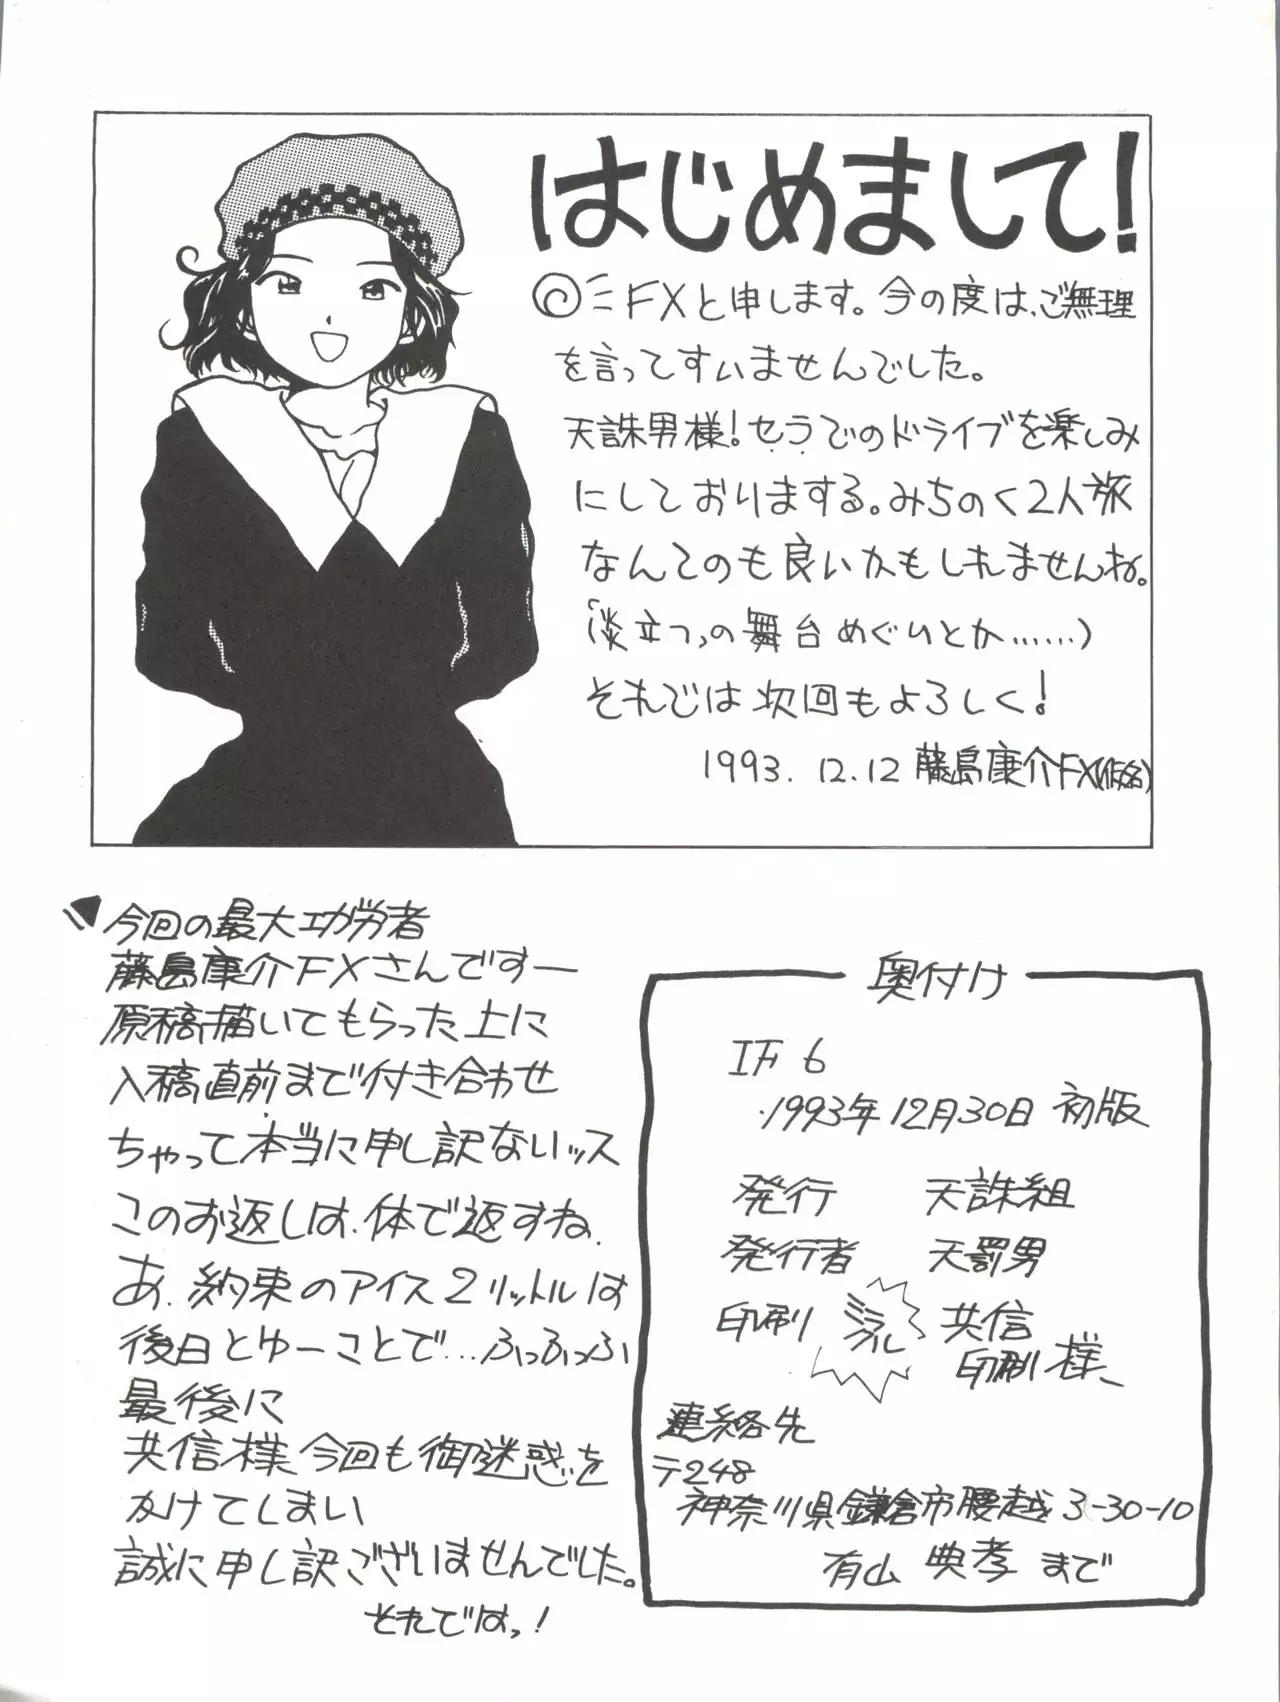 はじめまして!
FXと申します。今の度は、ご無理
を言ってすいませんでした。
天誅男様!セラでのドライブを楽しみ
にしておりまする。みちのく2人旅
なんてのも良いかもしれませんね。
の舞台めぐりとか……)
それでは次回もよろしく!
1993.12.12 藤島康介FX(仮名)
今回の最大功労者
藤島康介FXさんですー
原稿描いてもらった上に
入稿直前まで付き合わせ
ちゃって本当に申し訳ないッス
このお返しは、体で返すね、
あ、約束のアイス2リットルは
後日とゆーことで…ふっふっふ
最後に
共信様、今回も御迷惑を
かけてしまい
誠に申し訳ございませんでした。
それではっ!
奥付け
IF 6
1993年12月30日 初版
発行 天誅組
発行者 天罰男
印刷 ミラクル 共信
印刷様
連絡先
〒248
神奈川県鎌倉市腰越3-30-10
有山 典孝 まで